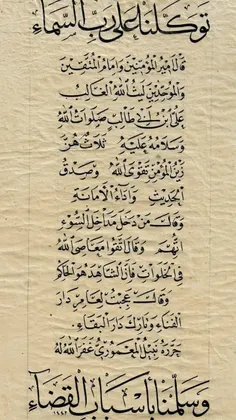 توكلنا على رب السماء
قال أمير المؤمنين وإمام المتقين
والموحدين ليث الله الغالب
علي بن أبي طالب صلوات الله
وسلامه عليه ثلاث هن
زين المؤمن تقوى الله وصدق
الحديث وأداء الأمانة
وقال من دخل مداخل السوء
اتهم وقال اتقوا معاصي الله
في الخلوات فإن الشاهد هو الحاكم
وقال عجبت لعامر دار
الفناء وتارك دار البقاء
حرره نبيل المعموري غفر الله له
وسلمنا لأسباب القضاء